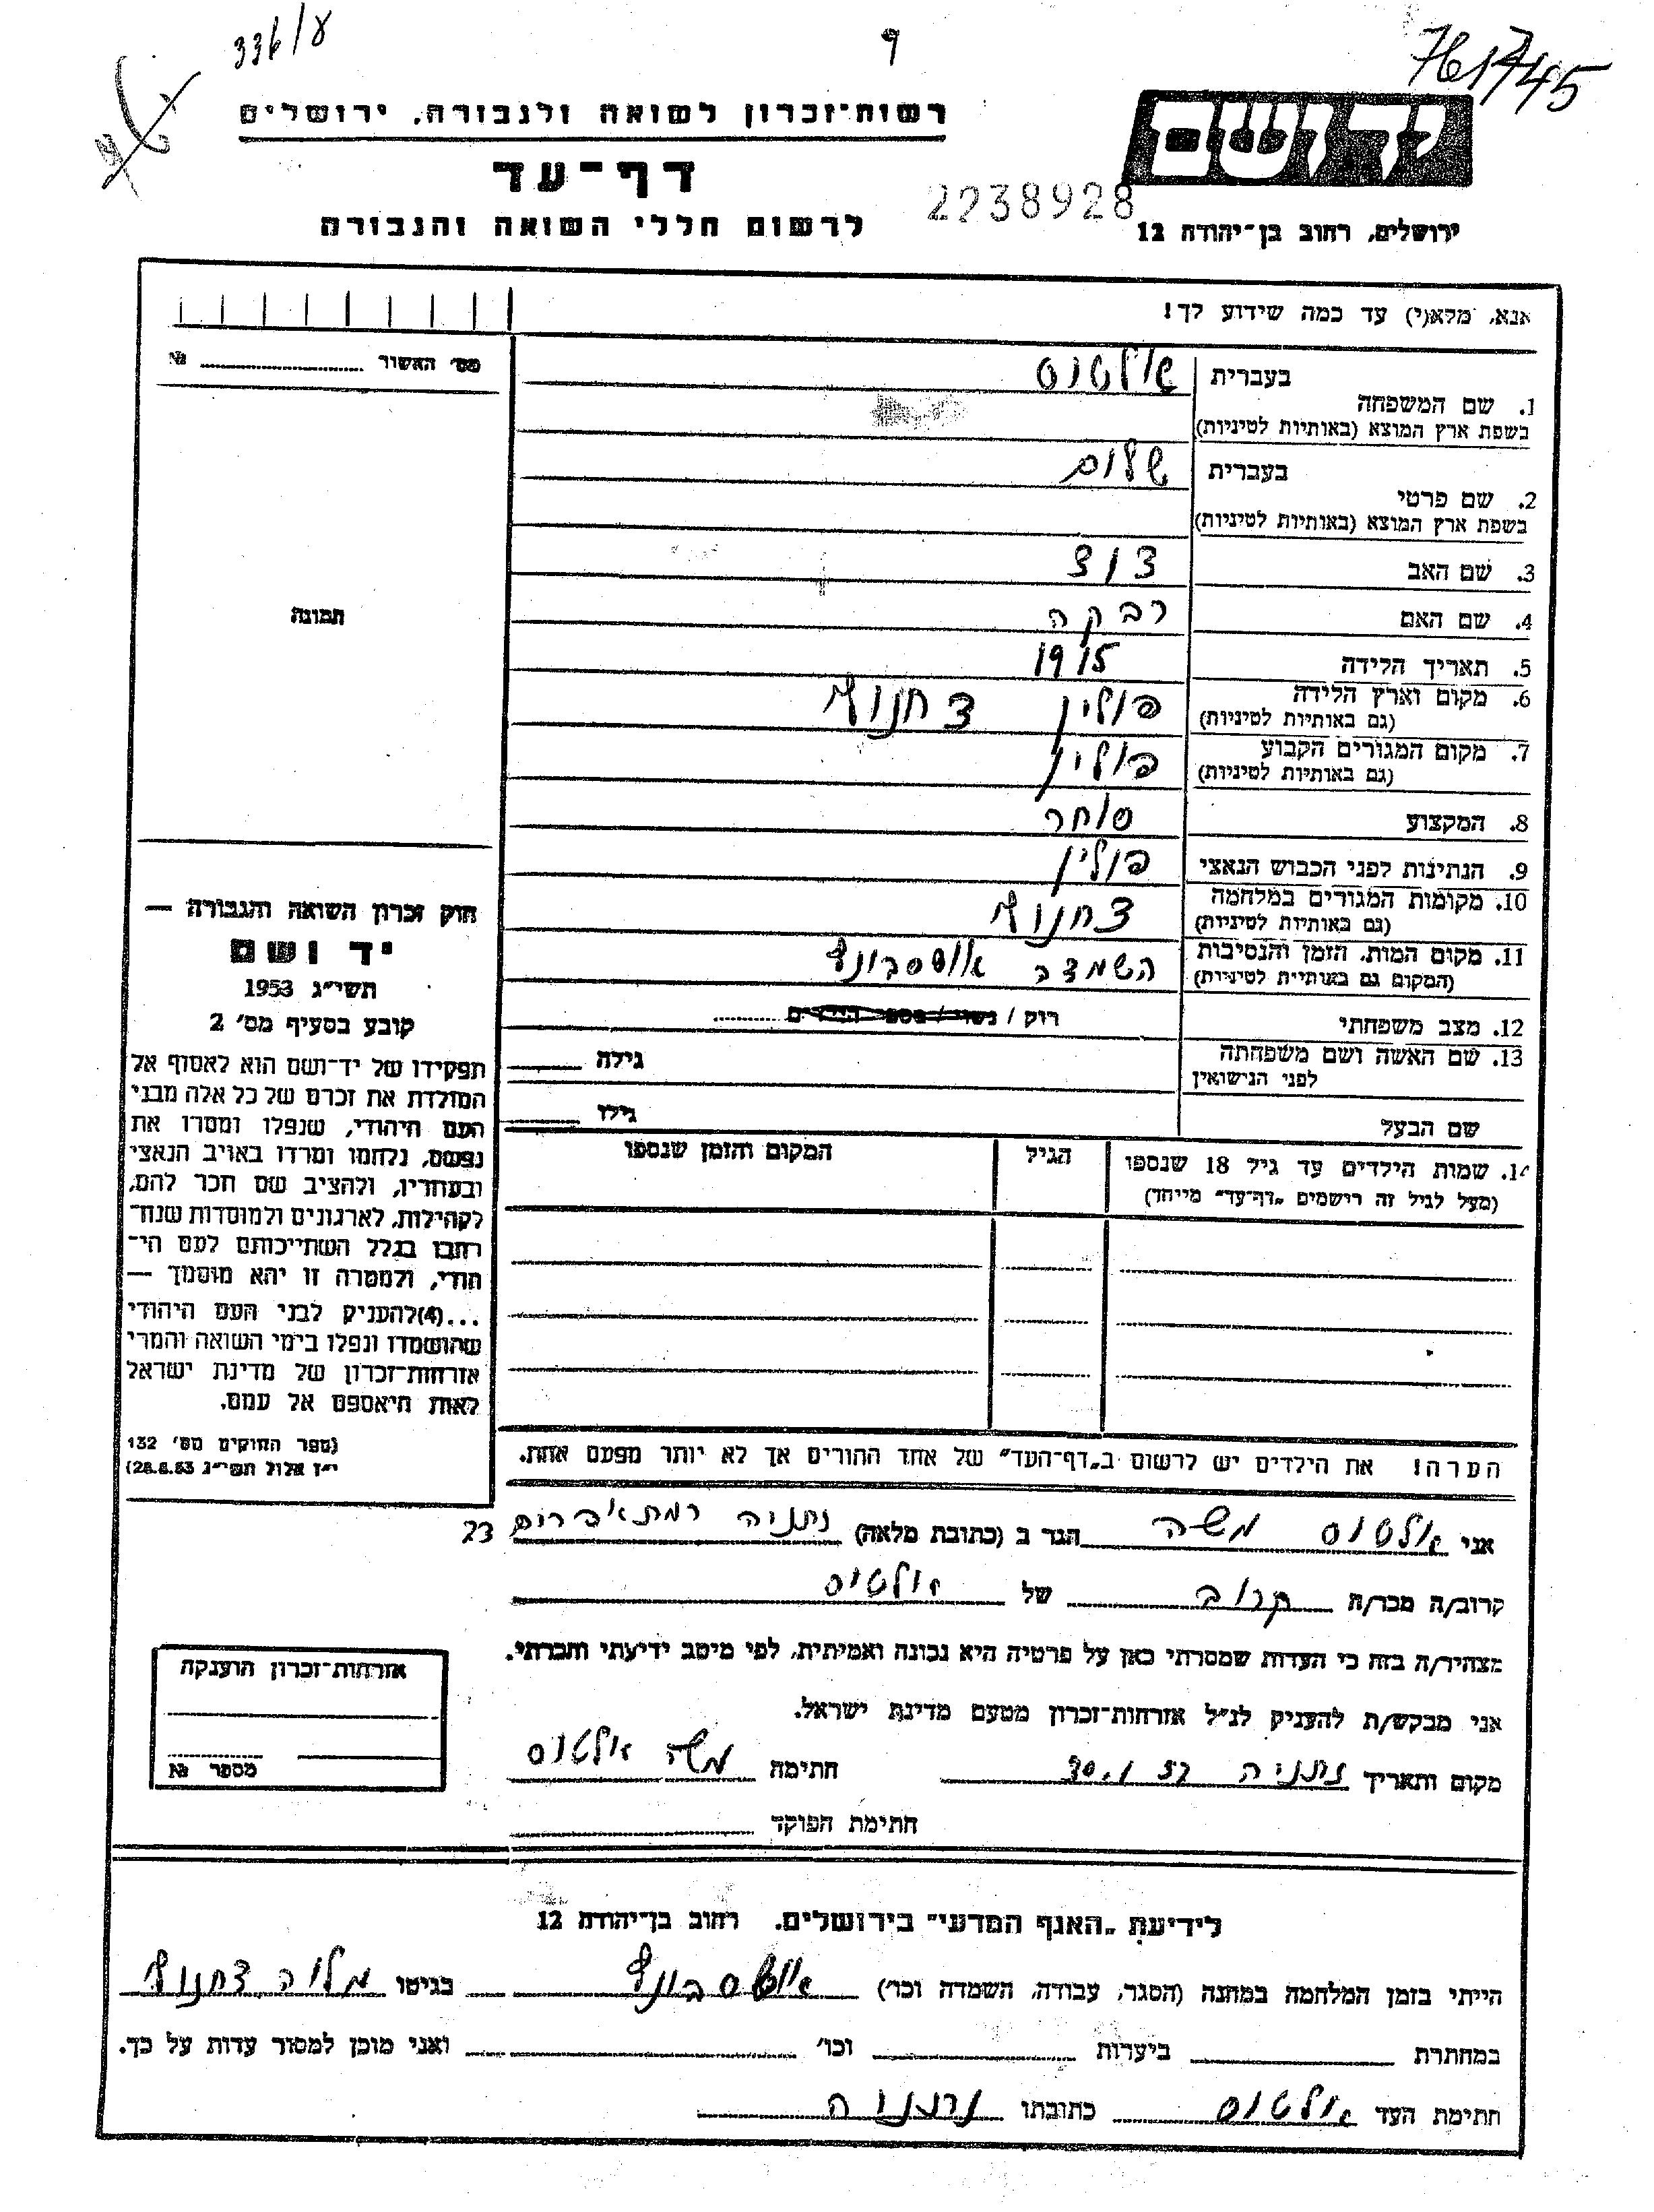 336/ע
761745
רשות־זכרון לשואה ולגבורה, ירושלים
יד ושם
דף־עד
2238928
לרשום חללי השואה והגבורה
ירושלים, רחוב בן־יהודה 12
אנא, מלא(י) עד כמה שידוע לך!
מס' האשור № 
1. שם המשפחה
בעברית אולטוס
בשפת ארץ המוצא (באותיות לטיניות)
2. שם פרטי
בעברית שלום
בשפת ארץ המוצא (באותיות לטיניות)
3. שם האב דוד
4. שם האם רבקה
תמונה
5. תאריך הלידה 1915
6. מקום וארץ הלידה פולין צחנוב
(גם באותיות לטיניות)
7. מקום המגורים הקבוע פולין
(גם באותיות לטיניות)
8. המקצוע סוחר
9. הנתינות לפני הכבוש הנאצי פולין
10. מקומות המגורים במלחמה צחנוב
(גם באותיות לטיניות)
11. מקום המות, הזמן והנסיבות השמדב
(המקום גם באותיות לטיניות)
12. מצב משפחתי רוק / נשוי / מספר הילדים
13. שם האשה ושם משפחתה גילה
לפני הנישואין
שם הבעל גילו
14. שמות הילדים עד גיל 18 שנספו
(מעל לגיל זה רישמים „דף־עד" מייחד)
הגיל
המקום והזמן שנספו
חוק זכרון השואה והגבורה —
יד ושם
תשי״ג 1953
קובע בסעיף מס' 2
תפקידו של יד־ושם הוא לאסוף אל
המולדת את זכרם של כל אלה מבני
העם היהודי, שנפלו ומסרו את
נפשם, נלחמו ומרדו באויב הנאצי
ובעוזריו, ולהציב שם וזכר להם,
לקהילות, לארגונים ולמוסדות שנח־
רבו בגלל השתייכותם לעם הי־
הודי, ולמטרה זו יהא מוסמך —
...(4)להעניק לבני העם היהודי
שהושמדו ונפלו בימי השואה והמרי
אזרחות־זכרון של מדינת ישראל
לאות היאספם אל עמם.
(ספר החוקים מס' 132
י״ז אלול תשי״ג 28.8.53)
הערה! את הילדים יש לרשום ב„דף־העד" של אחד ההורים אך לא יותר מפעם אחת.
אני אולטוס משה הגר ב (כתובת מלאה) נתניה רמת אפרים 23
קרוב/ה מכר/ה קרוב של אולטוס
מצהיר/ה בזה כי העדות שמסרתי כאן על פרטיה היא נכונה ואמיתית, לפי מיטב ידיעתי והכרתי.
אני מבקש/ת להעניק לנ״ל אזרחות־זכרון מטעם מדינת ישראל.
מקום ותאריך נתניה 30.1.57 חתימה משה אולטוס
חתימת הפוקד
אזרחות־זכרון הוענקה
מספר №
לידיעת „האגף המדעי" בירושלים. רחוב בן־יהודה 12
הייתי בזמן המלחמה במחנה (הסגר, עבודה, השמדה וכו') בגיטו מלוה צחנוב
במחתרת ביערות וכו' ואני מוכן למסור עדות על כך.
חתימת העד אולטוס כתובתו נתניה